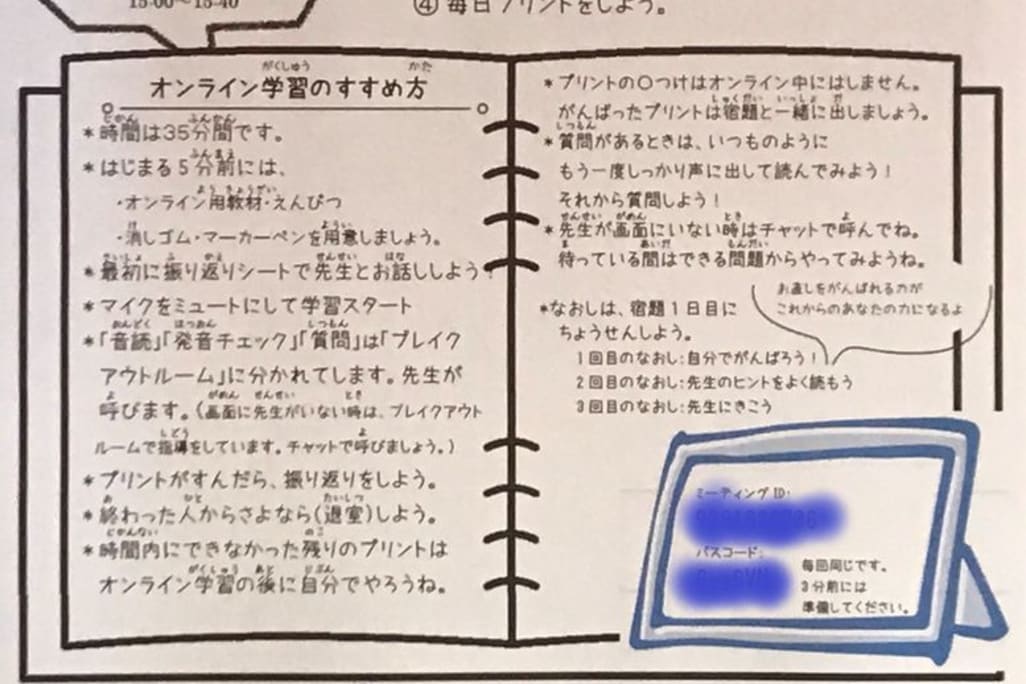 15:00〜15:40
④ 毎日プリントをしよう。
オンライン学習のすすめ方
＊時間は35分間です。
＊はじまる5分前には、
・オンライン用教材・えんぴつ
・消しゴム・マーカーペンを用意しましょう。
＊最初に振り返りシートで先生とお話ししよう
＊マイクをミュートにして学習スタート
＊「音読」「発音チェック」「質問」は「ブレイク
アウトルーム」に分かれてします。先生が
呼びます。（画面に先生がいない時は、ブレイクアウト
ルームで指導をしています。チャットで呼びましょう。）
＊プリントがすんだら、振り返りをしよう。
＊終わった人からさよなら（退室）しよう。
＊時間内にできなかった残りのプリントは
オンライン学習の後に自分でやろうね。
＊プリントの〇つけはオンライン中にはしません。
がんばったプリントは宿題と一緒に出しましょう。
＊質問があるときは、いつものように
もう一度しっかり声に出して読んでみよう！
それから質問しよう！
＊先生が画面にいない時はチャットで呼んでね。
待っている間はできる問題からやってみようね。
お直しをがんばれる力が
これからのあなたの力になるよ
＊なおしは、宿題1日目に
ちょうせんしよう。
1回目のなおし：自分でがんばろう！
2回目のなおし：先生のヒントをよく読もう
3回目のなおし：先生にきこう
ミーティングID:
パスコード:
毎回同じです。
3分前には
準備してください。